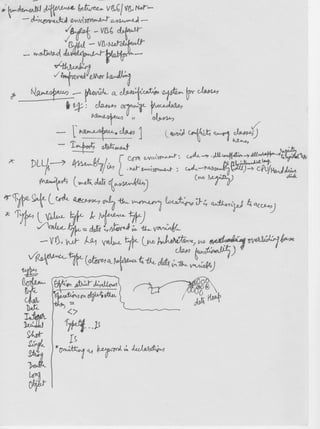 * fundamental difference between VB6 / VB.Net -
- disconnected environment assumed -
✓ByRef - VB6 default
✓ByVal - VB.net default
- matured development platform -
✓threading
✓improved error handling
* Namespaces - provide a classification system for classes
eg: classes organize procedures
namespaces " classes
- [namespace, class] (avoid conflicts among classes) names
- Imports statement
* DLLs → Assembly/ies
com enviroment: code →
.net enviroment: code → assembly → CPU/Hard drive
(no registry)
manifests (meta data of assemblies)
* Type Safe (code accesses only the memory locations it is authorized to access)
* Types (Value type & Reference type)
✓Value type = data is stored in the variable
- VB.net has value type (no Inheritance, no overriding base class funtionality)
✓Reference type (stores a reference to the data in the variable)
types
Boolean
Byte
Char
Date
Integer
Decimal
Short
Single
String
Double
Long
Object
Option strict disallows
*Operations on object other than, =
<>
Typeof...Is
Is
*omitting as keyword in declarations
data Heap